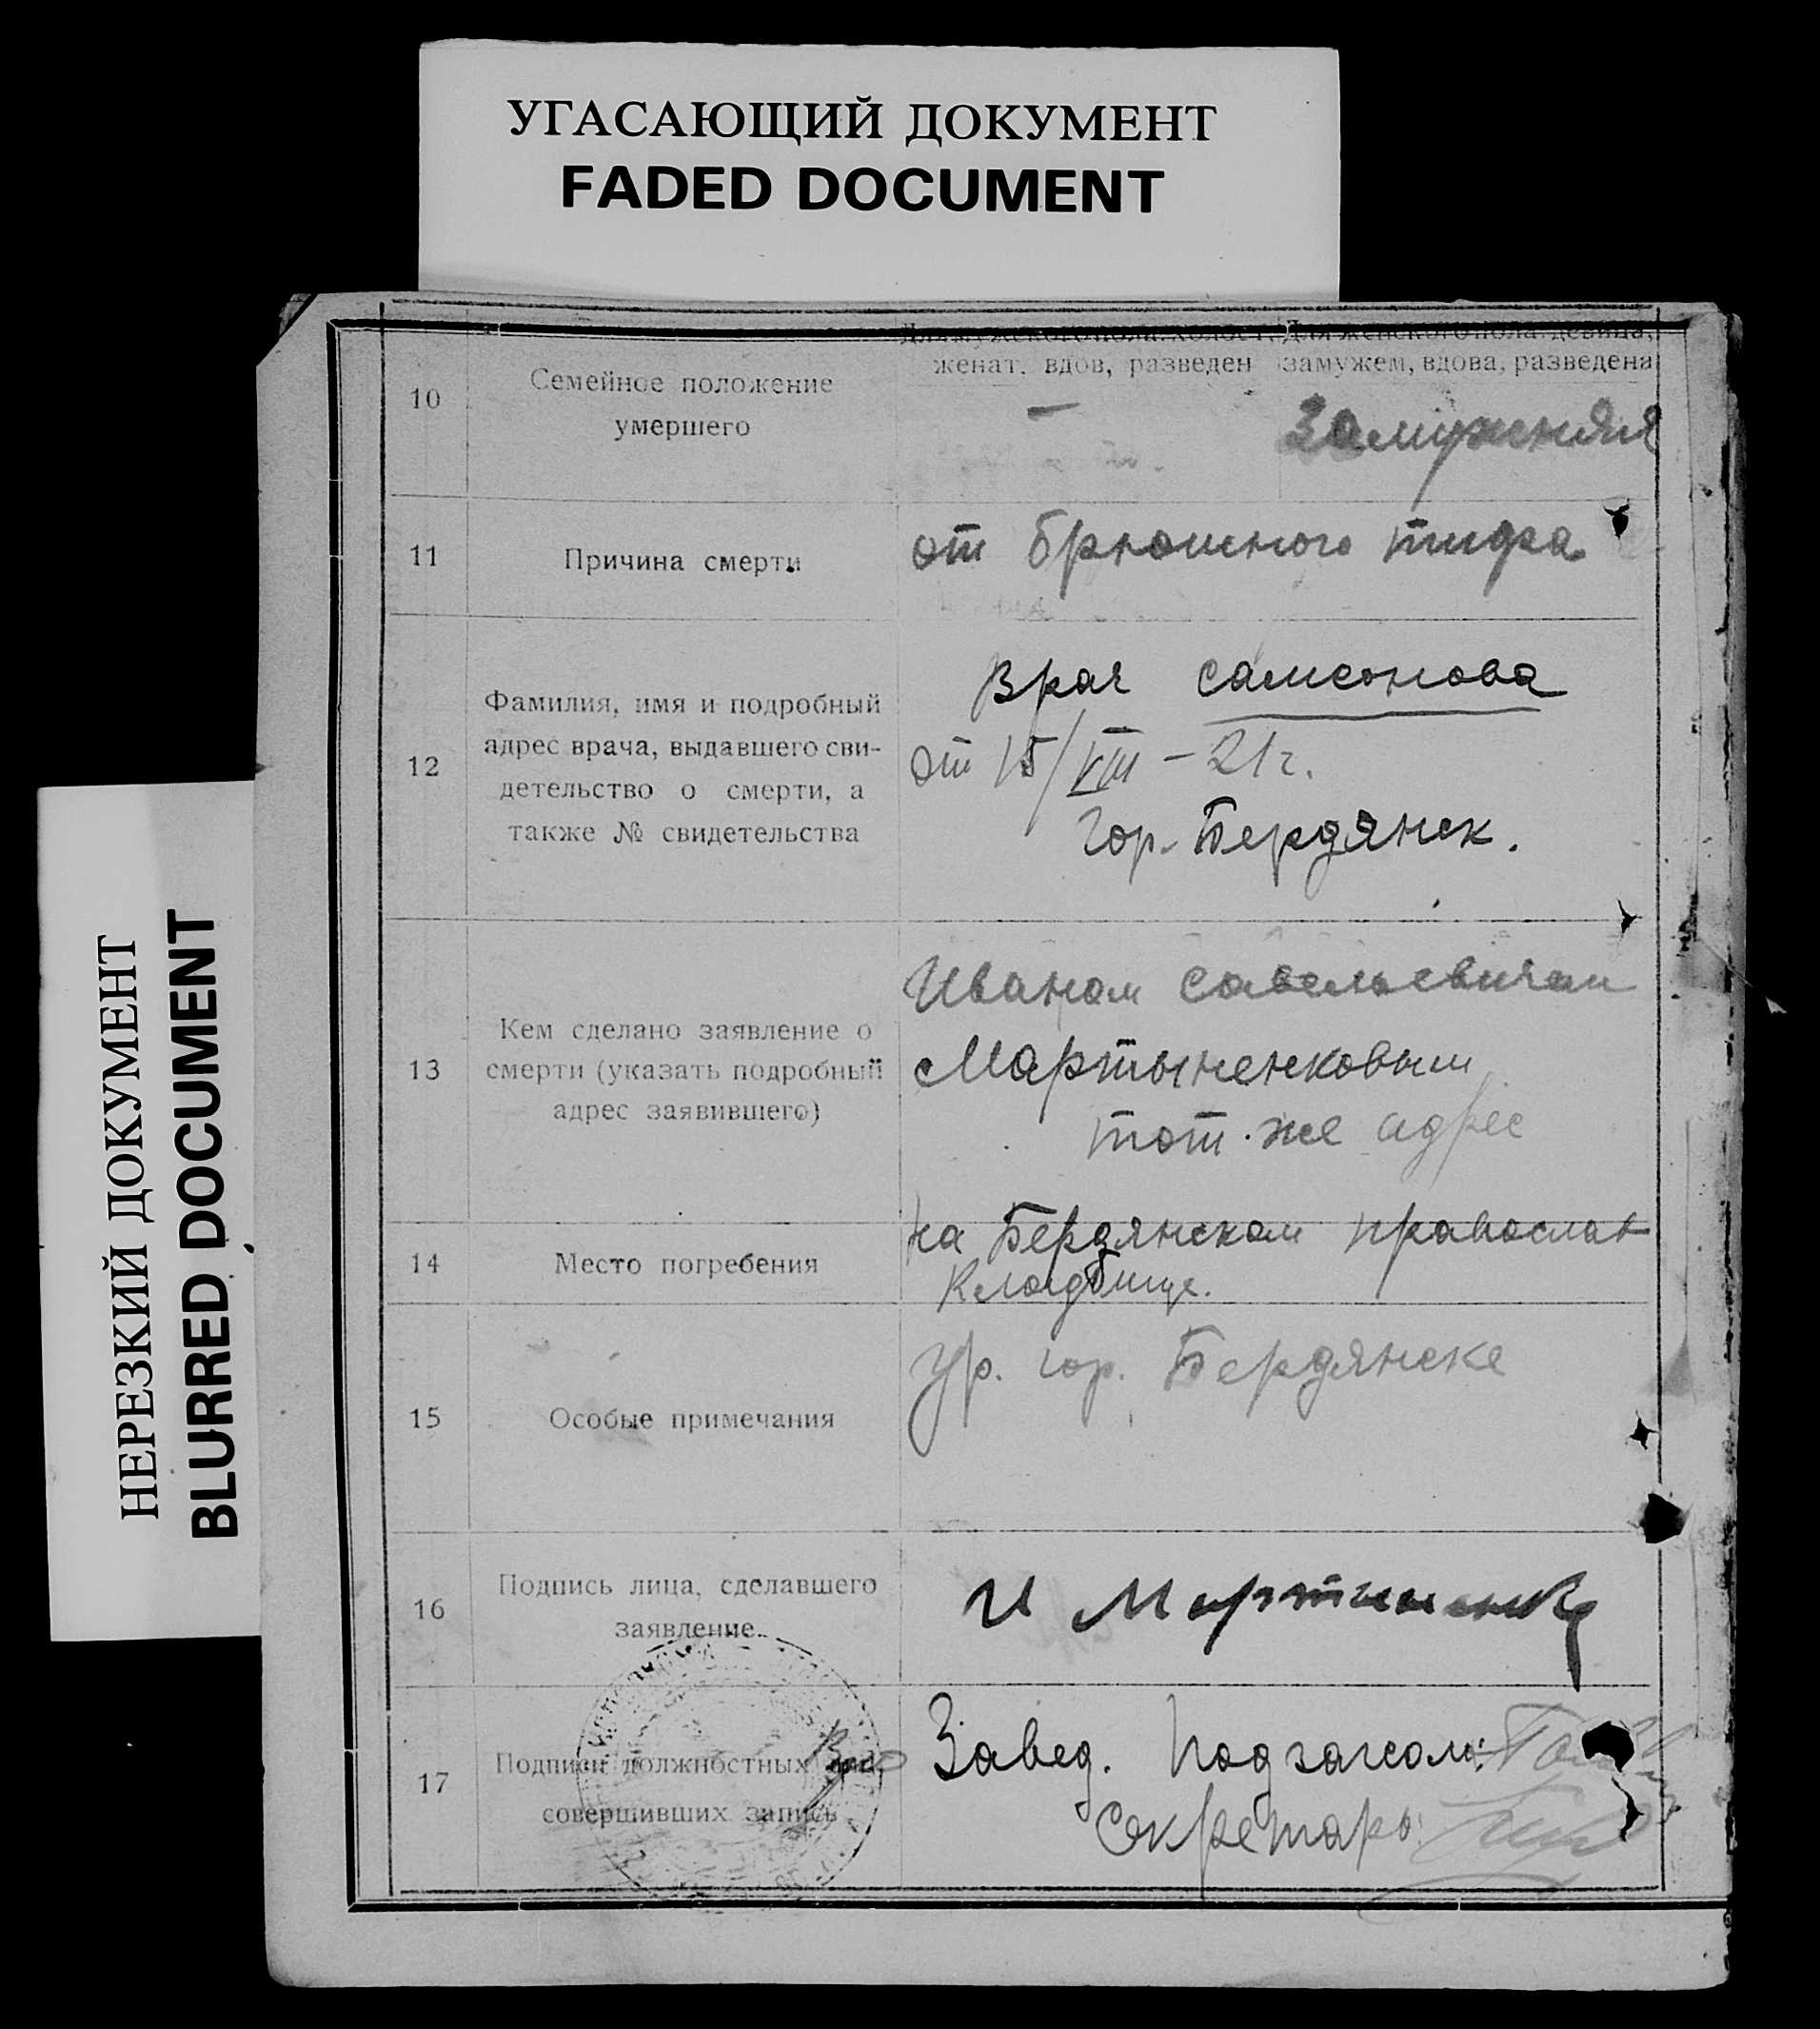 УГАСАЮЩИЙ ДОКУМЕНТ
FADED DOCUMENT
НЕРЕЗКИЙ ДОКУМЕНТ
BLURRED DOCUMENT
Для мужского пола: холост, Для женского пола: девица,
женат, вдов, разведен замужем, вдова, разведена
10 Семейное положение
умершего
— Замужняя
11 Причина смерти от брюшного тифа
12 Фамилия, имя и подробный
адрес врача, выдавшего сви-
детельство о смерти, а
также № свидетельства
Врач Самсонова
от 15/VIII – 21 г.
Гор. Бердянск.
13 Кем сделано заявление о
смерти (указать подробный
адрес заявившего)
Иваном Савельевичем
Мартыненковым
тот же адрес
14 Место погребения
на Бердянском православ
Кладбище.
15 Особые примечания
Ур. гор. Бердянске
16 Подпись лица, сделавшего
заявление
И Мартыненко
17 Подписи должностных лиц,
совершивших запись
Завед. Подзагсом:
Секретарь: